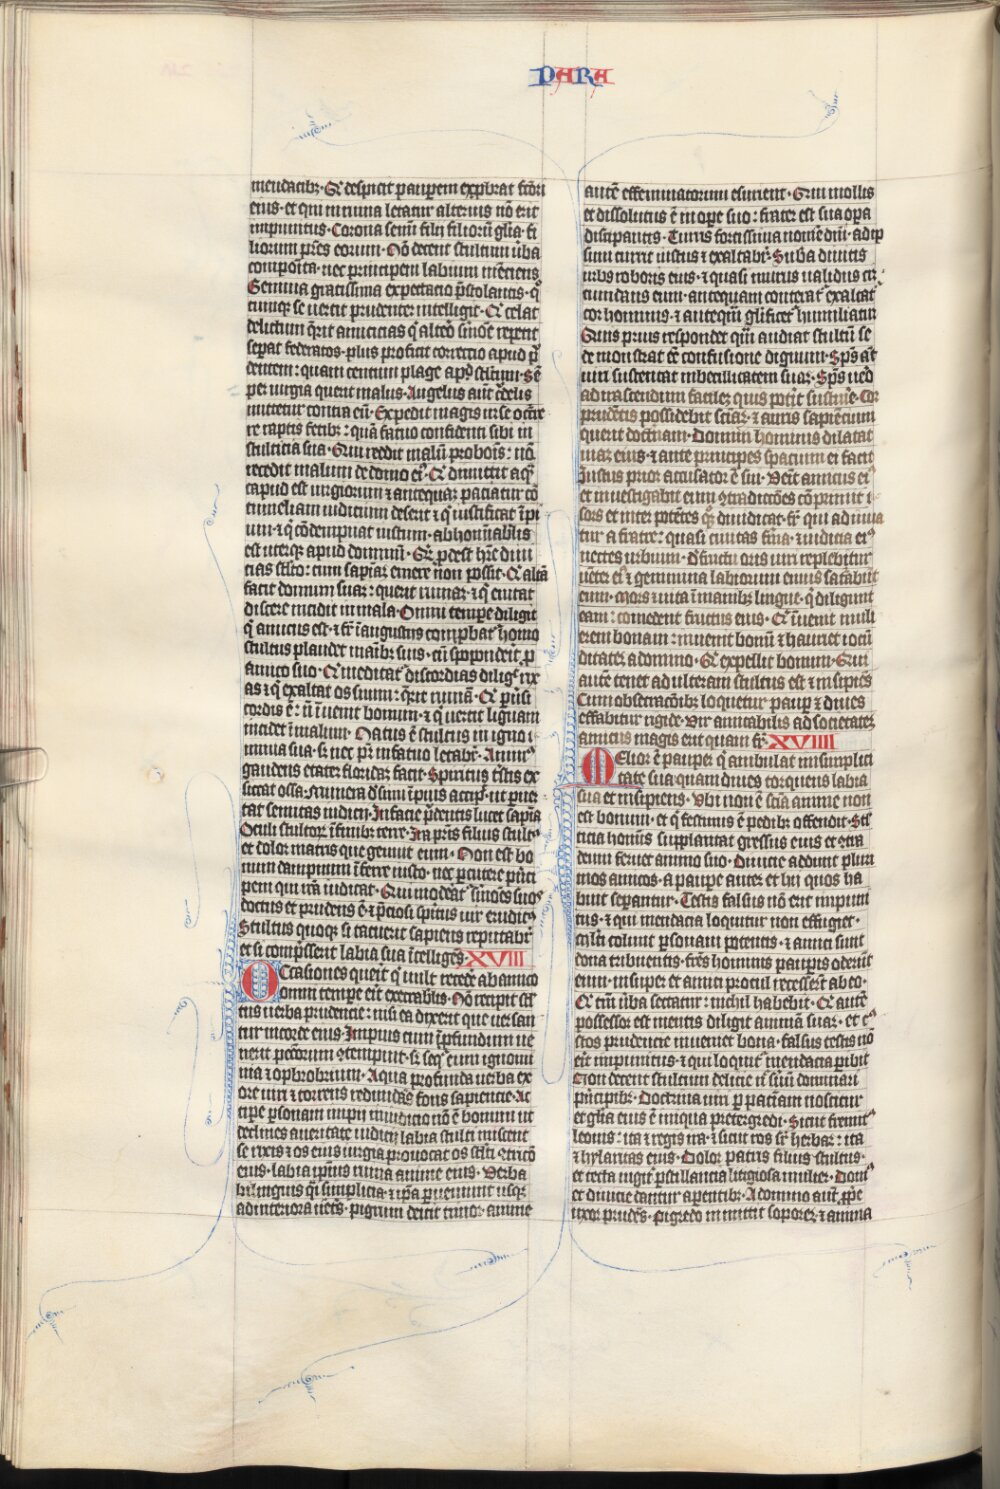 PARA
mendacibꝫ· Qͥ despicit pauꝑem exꝓbrat fc̄ori
eius· et qui in ruina letatur alterius nō erit
impunitus· Corona senū filij filiorū gl̄ia fi
liorum pr̄es eorum· Nō decent stultum ūba
composita· nec principem labium mēciens
Gemma gratissima expectacio p̄stolantis· q̊
cumqꝫ se uertit prudenter intelligit· Qͥ celat
delictum q̄rit amicicias qͥ altͦo s̄mōe repetit
sepat federatos· plus proficit correctio apud p̄
dentem: quam centum plage apd̓ stultum· Sē
per iurgia querit malus· Angelus aūt c̄delis
mittetur contra eū· Expedit magis urse occr̄re
re raptis fetibꝫ: quā fatuo confidenti sibi in
stulticia sua· Qui reddit malū pro bonis: nō
recedit malum de domo eiꝰ· Qͥ dimittit aqͣꝫ
caput est iurgiorum ⁊ antequaꝫ paciatur cō
tumeliam iudicium deserit ⁊ qͥ iustificat īpi
um· ⁊ qͥ cōdempnat iustum· abhominabilis
est uterqꝫ apud dominū· Qͥd ꝓdest hr̄e diui
cias stl̄to: cum sapiaꝫ emere non possit· Qͥ altā
facit domum suaꝫ: querit ruinaꝫ ⁊ qͥ euitat
discere incidit in mala· Omni tempe diligit
qͥ amicus est· ⁊ fr̄ ī angustijs comꝓbat᷑ homo
stultus plaudet māibꝫ suis· cū spoponderit ꝓ
amico suo· Qͥ meditat᷑ discordias diligͥt rix
as ⁊ qͥ exaltat os suum: q̄rit ruinā· Qͥ ꝑūsi
cordis ē: n̄ īueniet bonum· ⁊ qͥ uertit liguam
incidet ī malum· Natus ē stultus in igno i
minia sua· sꝫ nec pr̄ in fatuo letabr̄· Animꝰ
gaudens etateꝫ floridaꝫ facit· Spiritus tͥstis ex
siccat ossa· Munera d̓ sinu īpius accip̄· ut ꝑuer
tat semitas iudicij· In facie p̄dentis lucet sapīa
Oculi stultoꝝ ī finibꝫ terre· Ira pr̄is filius stultꝰ
et dolor matris que genuit eum· Non est bo
num dampnum īferre iusto· nec ꝑcutere pͥnci
pem qui rc̄a iudicat· Qui moderat᷑ s̄mōes suos
doctus et prudens ē· ⁊ p̄ciosi spiritus uir eruditꝰ
Stultus quoqꝫ si tacuerit sapiens reputabr̄
et si compͣsserit labia sua ītelligēs· XVIII
Occasiones querit qͥ uult recede̓ ab amico
omni tempe erit execrablis· Nō recipit stl̓
tus uerba prudencie: nisi ea dixerit que uersan
tur in corde eius· Impius cum ī ꝓfundum ue
nerit pcc̄orum 9tempnit· sꝫ seqͥt᷑ eum ignomi
nia ⁊ opbrobrium· Aqua profunda uerba ex
ore uiri ⁊ torrens redundās fons sapiencie· Ac
cipe ꝑsonam impij in iudicio nō ē bonum ut
declines a ueritate iudicij labia stulti miscent
se rixis ⁊ os eius iurgia prouocat os stl̄ti 9tricō
eius· labia ipsius ruina anime eius· Verba
bilinguis qͣi simplicia· ⁊ ipa ꝑueniunt usqꝫ
ad interiora uētͥs· pigrum deicit timor· anime
autē effeminatorum esurient· Qui mollis
et dissolutus ē in oꝑe suo: frater est sua oꝑa
dissipantis· Turris fortissima nomē dn̄i· ad ip̄
sum currit iustus ⁊ exaltabit᷑· Suba diuitis
urbs roboris eius· ⁊ quasi murus ualidus cir
cumdans eum· antequam conterat᷑ exaltat᷑
cor hominis· ⁊ anteqͣm glificet᷑ humiliatur
Quis prius respondet qͣm audiat stultū se
de monstrat eē confusione dignum· Sps̄ aīt
uiri sustentat imbecillitatem suaꝫ· Sps̄ uero
ad irascendum facileꝫ quis potͥit sustine̓· Cor
prudētis possidebit sciāꝫ· ⁊ auris sapiencium
querit doct̓nam· Donum hominis dilatat
uiaꝫ eius· ⁊ ante principes spacium ei facit
Iustus prior accusator ē sui· Vēit amicus eiꝰ
et inuestigabit eum 9tradictōes cōprimit i·
sors et inter potētes qͦꝫ diiudicat· fr̄ qui adiuua
tur a fratre: quasi ciuitas firma· ⁊ iudicia eiꝰ
uectes urbium· D̓ fructu oris uiri replebitur
uēter eiꝰ ⁊ gemmina labiorum eius satiabūt
eum· Mors ⁊ uita ī manibꝫ lingue· qͥ diligunt
eam: comedent fructus eius· Qͥ īuenit muli
erem bonam: inuenit bonū ⁊ hauriet iocū
ditateꝫ a domino· Qͥ expellit bonum· Qui
autē tenet adulteram stultus est ⁊ insipiēs
Cum obsecracōibꝫ loquetur pauꝑ ⁊ diues
effabitur rigide· Vir amicabilis ad societateꝫ
amicus magis erit quam fr̄· XVIIII
Melior ē pauꝑ qͥ ambulat in simplici
tate sua· quam diues torquens labia
sua et insipiens· Vbi non ē sciā anime non
est bonum· et qͥ festinus ē pedibꝫ offendit· Stl̓
ticia hominis supplantat gressus eius et 9tra
deum feruet animo suo· Diuicie addunt pluri
mos amicos· a pauꝑe auteꝫ et hij quos ha
buit sepantur· Testis falsus nō erit impuni
tus· ⁊ qui mendacia loquitur non effugiet·
Ml̄ti colunt ꝑsonam potentis· ⁊ amici sunt
dona tribuentis· fr̄es hominis pauꝑis oderūt
eum· insuꝑ et amici procul recesserūt ab eo·
Qͥ tm̄ ūba sectatur: nichil habebit· Qͥ autē
possessor est mentis diligit animā suaꝫ· et cꝰ
stos prudencie inueniet bona· falsus testis nō
erit impunitus· ⁊ qui loquit᷑ mendacia ꝑibit
Non decent stultum delicie nͨ ẜuū dominari
pͥncipibꝫ· Doctrina uiri ꝑ pacienciam noscitur
et glīa eius ē iniqua pretergredi· Sicut fremitꝰ
leonis: ita ⁊ regis ira· ⁊ sicut ros sr̄ herbaꝫ: ita
⁊ hylaritas eius· Dolor patris filius stultus·
et tecta iugit̓ ꝑstillancia litigiosa mulier· Domꝰ
et diuicie dantur a parentibꝫ· A domino aūt ꝓp̄e
uxor prudēs· Pigredo inmittit soporeꝫ ⁊ anima